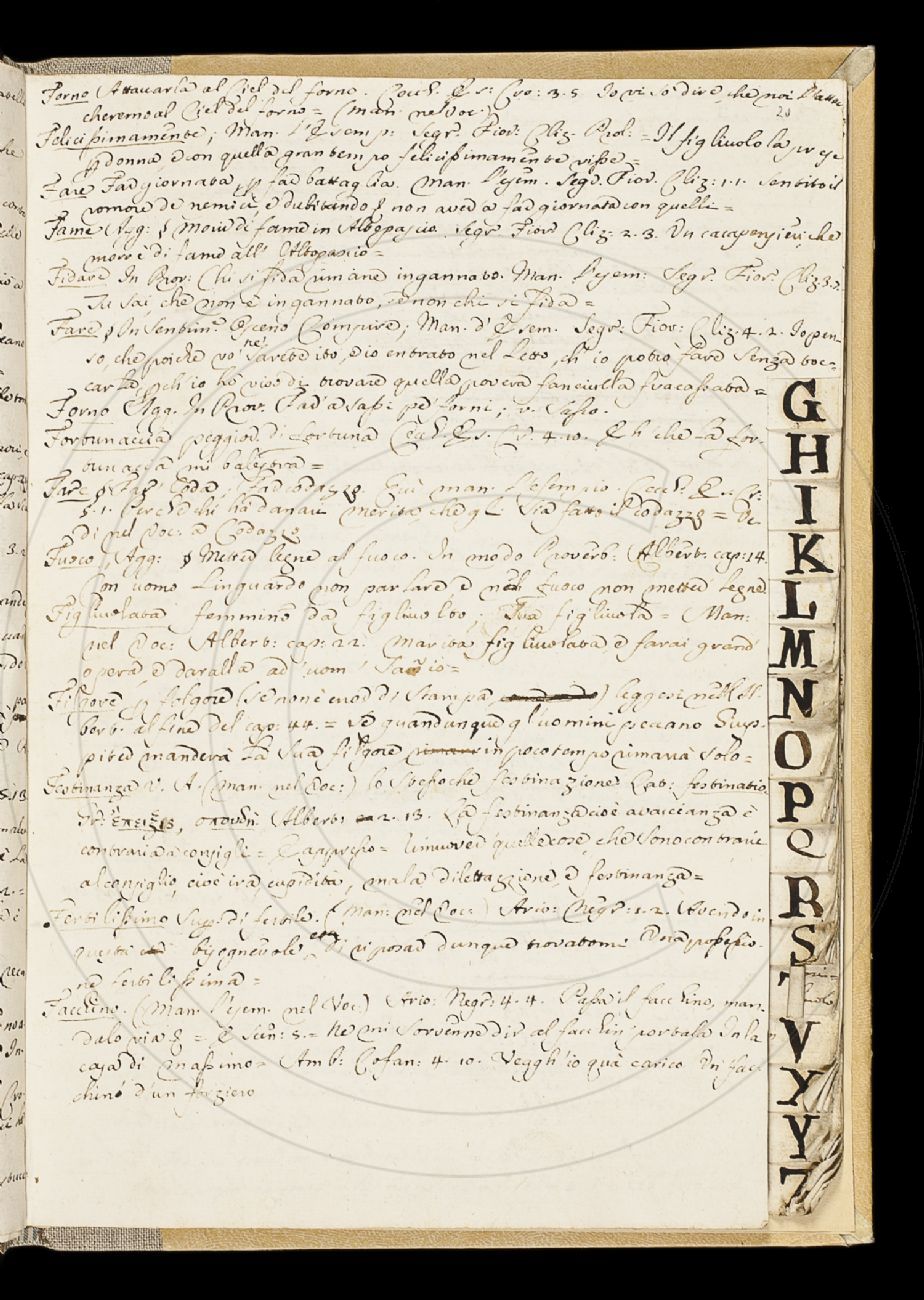 Forno (Attaccarla al Ciel del forno. Cecch. Es: Cro: 3. 5 Io vi so dire, che noi l'attac
20
cheremo al Ciel del forno = (Man. nel Voc:)
Felicissimamente; Man. l'Esemp: Segr. Fior. Cliz. Prol: = Il figliuolo la prese
p donna e con quella gran tempo felicissimamente visse =
Fare Far giornata, p far battaglia. Man. l'esem. Segr. Fior. Cliz: 1. 1. Sentito il
romore de nemici, e dubitando non aver a far giornata con quelli =
Fame (Ag: § Morir di fame in Altopascio. Segr Fior Cliz: 2. 3. Un cacapensieri che
morrè di fame all' Altopascio =
Fidare In Prov. Chi si fida rimane ingannato. Man. l'esem: Segr. Fior. Cliz 3. 7.
Tu sai, che non è ingannato, se non chi si fida =
Fare § In sentim. Osceno Compire; Man. d'Esem. Segr: Fior: Cliz. 4. 2. Io pen
so, che poiche vo' ne sarete ito, e io entrato nel letto, ch' io potrò fare senza toc-
carle, p ch'io ho viso di trovare quella povera fanciulla fracassata =
Forno Agg. In Prov. Far a sassi pe' forni; v. Sasso.
Fortunaccia peggior. di Fortuna Cecch. Es. Cr. 4. 10. Eh che la For-
tunaccia mi balestra =
Fare § Far Coda, Far codazzo. Giù man. l'esempio. Cecch. Es. Cr:
5. 1. Perche chi ha danari merita, che gl: sia fatto il codazzo = Ve
di nel Voc: a Codazzo
Fuoco, Agg: § Metter legne al fuoco. In modo Proverb: (Albert: cap: 14.
Con uomo linguardo non parlare, e nel fuoco non metter legne
Figliuolata femminino da figliuolto; Tua figliuola = (Man:
nel Voc: Albert: cap: 22. Marita figliuolata, e farai grand'
opera, e daralla ad uom' savio =
Filgore, p folgore (se non è error di Stampa) leggesi nell'Al-
bert: al fine del cap: 44. = Se quandunque gl'uomini peccano Iup-
piter manderà la sua filgore in poco tempo rimarrà solo =
Festinanza V. A. (Man. nel Voc:) lo stesso che festinazione Lat: festinatio
Gr: ἔπειξις, σπουδὴ (Albert: 2. 13. La festinanza cioè avaccianza è
contraria a' consigli = E appresso = rimuover quelle cose, che sono contrarie
al consiglio, cioè ira, cupidità, mala dilettazione, e festinanza =
Fertilissimo Sup. di fertile. (Man: nel Voc:) Ario: Negr: 1. 2. Avendo in
questa età bisognevole, età di riposar dunque trovatomi possessio-
ne fertilissima =
Facchino. (Man. l'esem. nel Voc:) Ario: Negr: 4. 4. Passa il facchino, man
dalo via § = E Scen: 5. = Ne mi sovvenne dir al facchin portala In la
casa di Massimo = Amb: Cofan: 4. 10. Vegghio quà carico Di fac
chino d'un forziero
G
H
I
K
L
M
N
O
P
Q
R
S
T
V
X
Y
Z